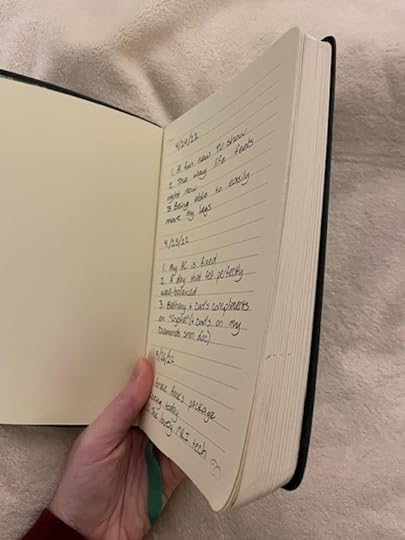 4/24/22
1. A fun new TV show
2. The way life feels
right now
3. Being able to easily
move my legs
4/25/22
1. My AC is fixed
2. A day that felt perfectly
well-balanced
3. Bethany + Dad's compliments
on "Crystal" (+ Dad's on my
Diamonds
4/26/22
package
today
lovely MRI tech